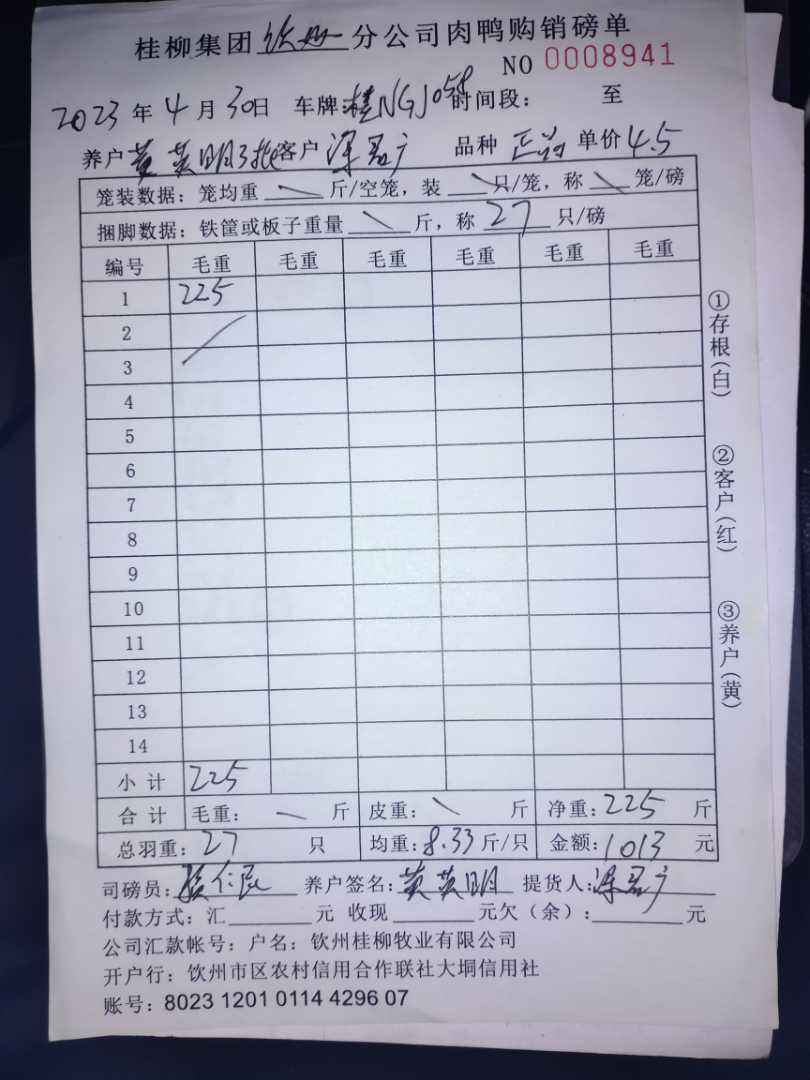 桂柳集团钦州分公司肉鸭购销磅单
NO 0008941
2023年4月30日 车牌:桂NGJ058 时间段: 至
养户 黄英明3批 客户 梁 广 品种 正品 单价 4.5
笼装数据: 笼均重 \ 斤/空笼, 装 \ 只/笼, 称 \ 笼/磅
捆脚数据: 铁筐或板子重量 \ 斤, 称 27 只/磅
编号 毛重 毛重 毛重 毛重 毛重 毛重
1 225
2
3
4
5
6
7
8
9
10
11
12
13
14
小计 225
合计 毛重: \ 斤 皮重: \ 斤 净重: 225 斤
总羽重: 27 只 均重: 8.33 斤/只 金额: 1013 元
司磅员: 养户签名: 黄英明 提货人: 梁 广
付款方式: 汇 元 收现 元欠(余): 元
公司汇款帐号: 户名: 钦州桂柳牧业有限公司
开户行: 钦州市区农村信用合作联社大垌信用社
账号: 8023 1201 0114 4296 07
①存根(白)
②客户(红)
③养户(黄)